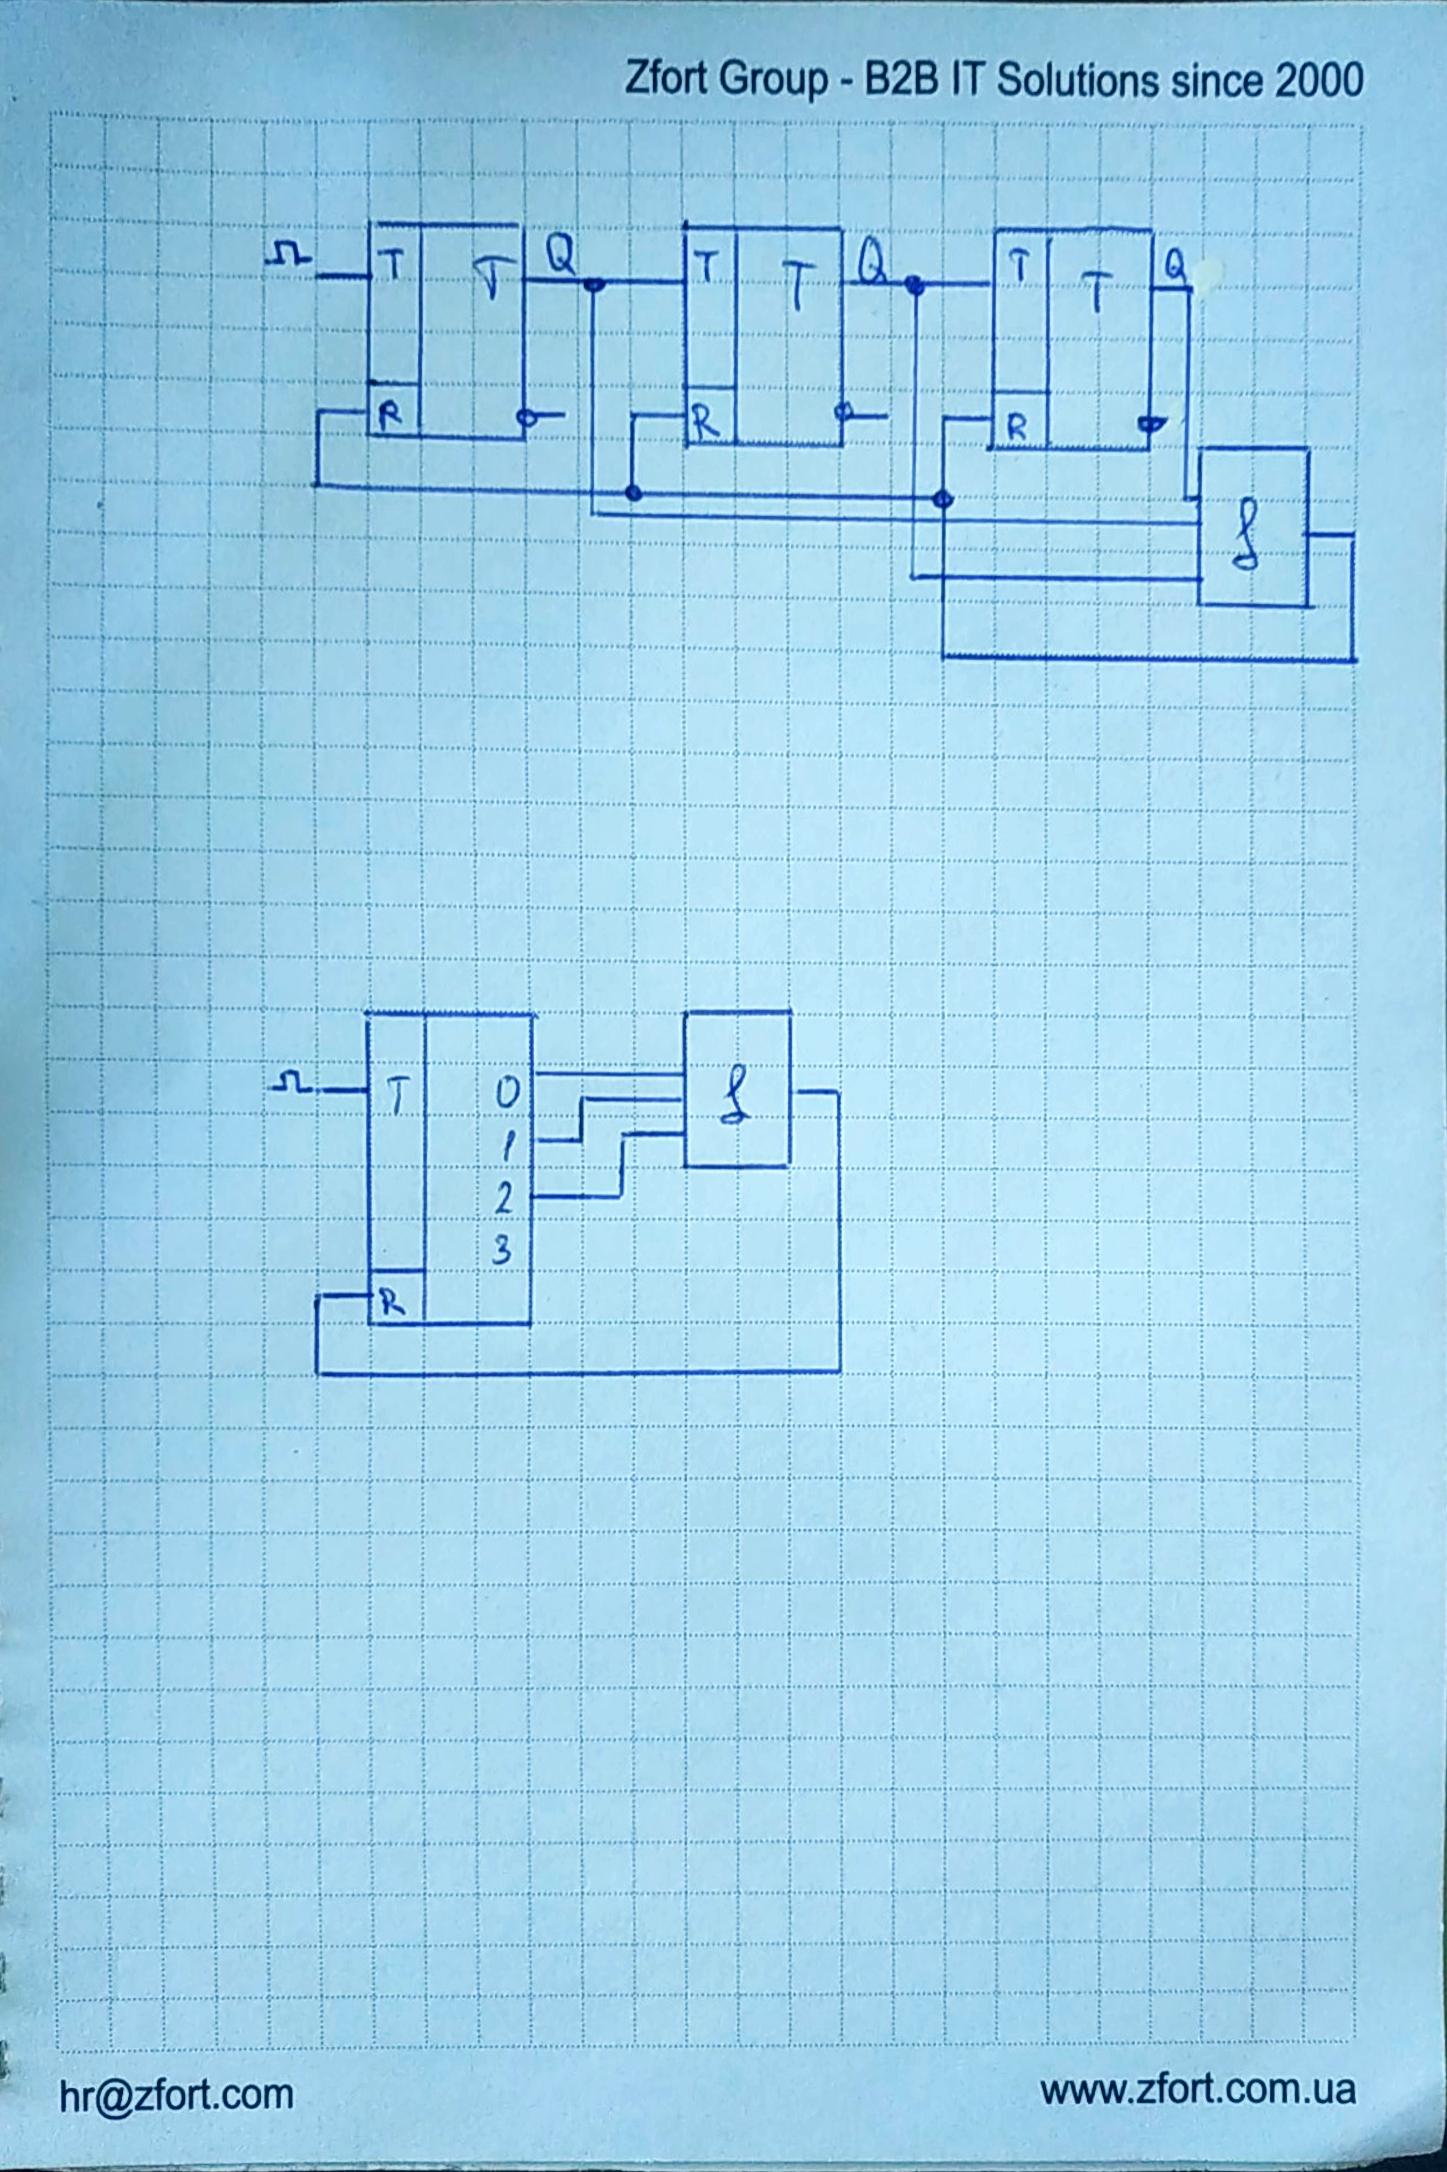 Zfort Group - B2B IT Solutions since 2000
T T Q T T Q T T Q
R R R
f
T 0 f
1
2
3
R
hr@zfort.com www.zfort.com.ua